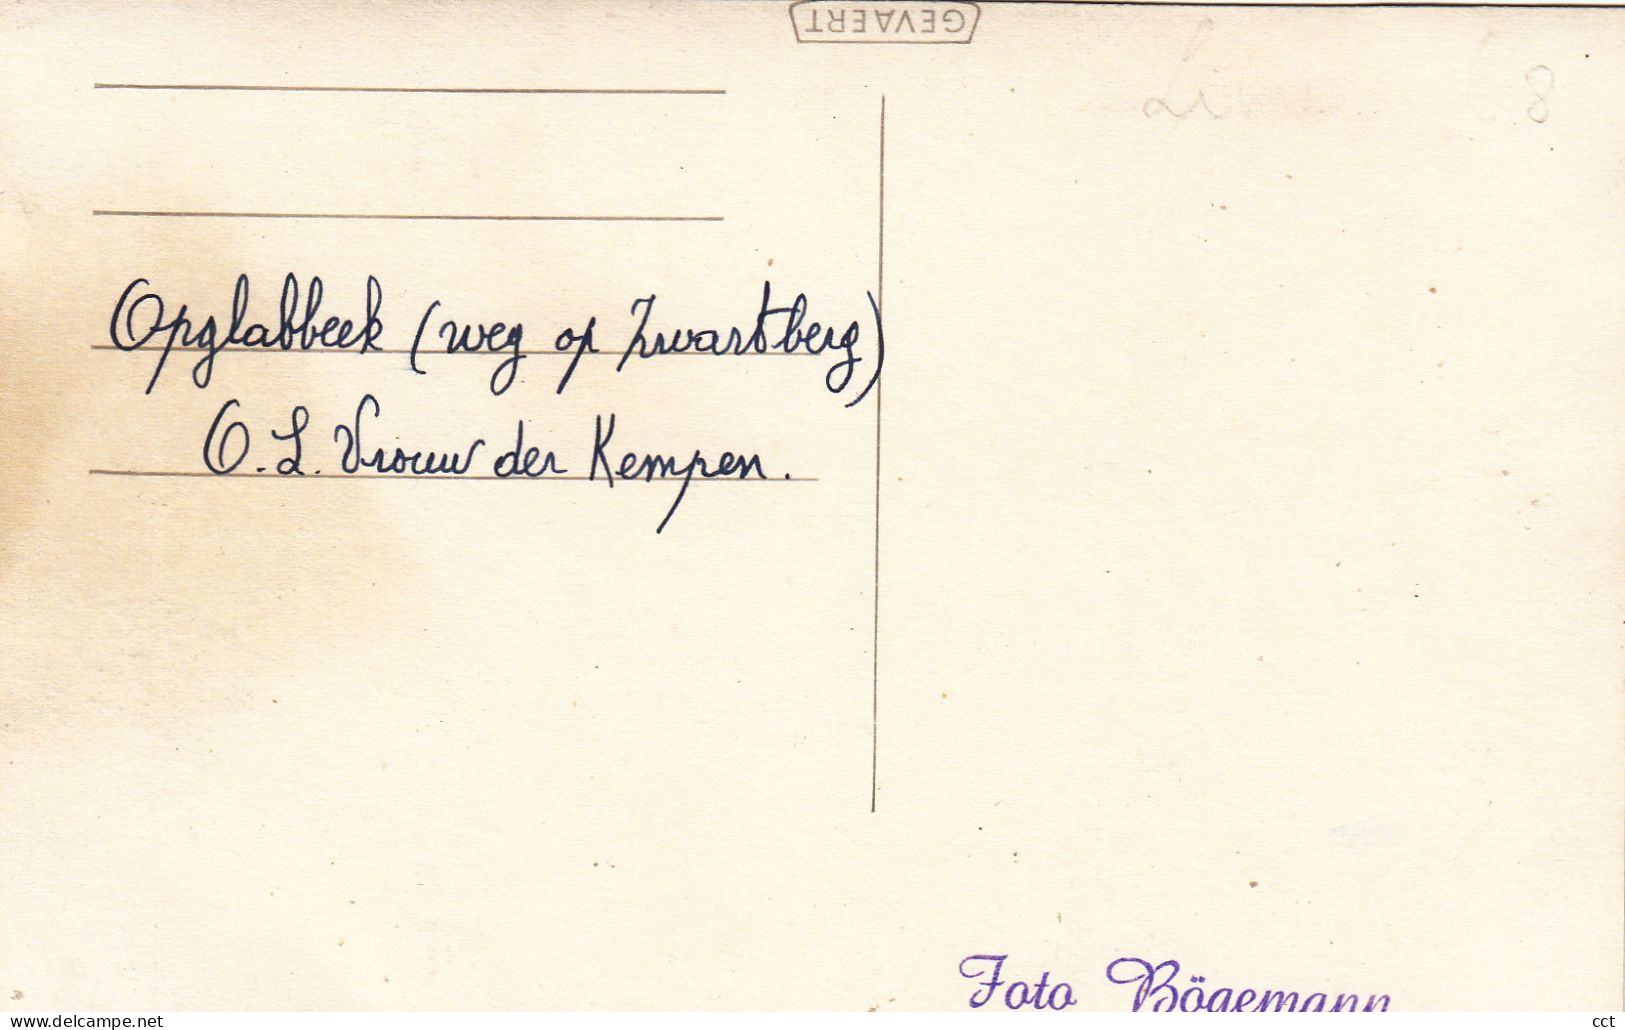 GEVAERT
8
Opglabbeek (weg op Zwartberg)
O. L. Vrouw der Kempen.
Foto Bögemann
www.delcampe.net
cct